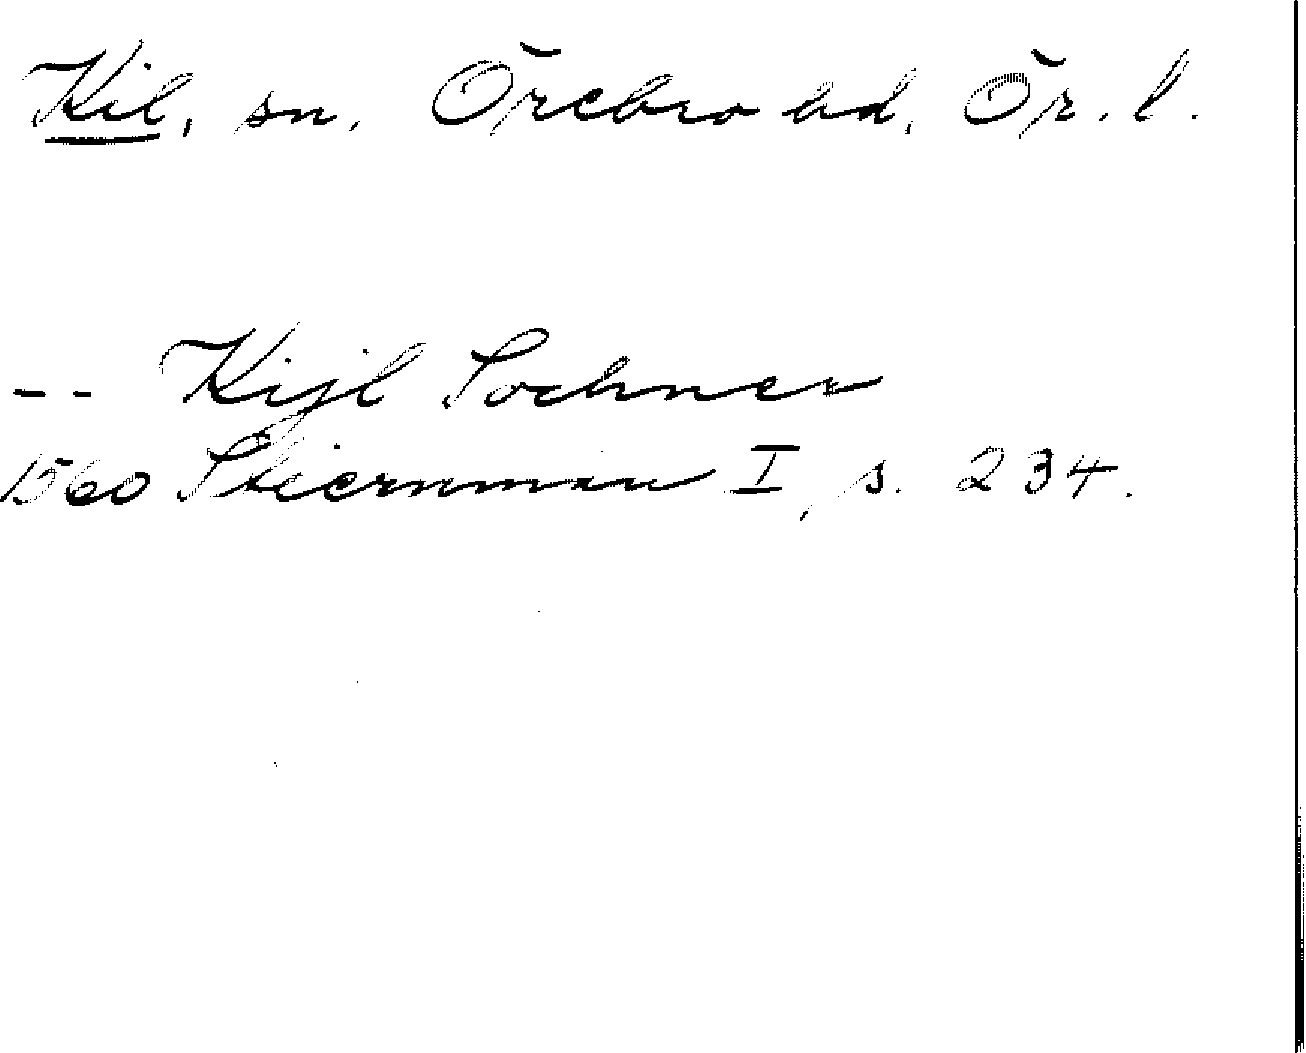 Kil, sn. Örebro hd, Ör. l.
-- Kijl Sochnen
1560 Stiernman I, s. 234.